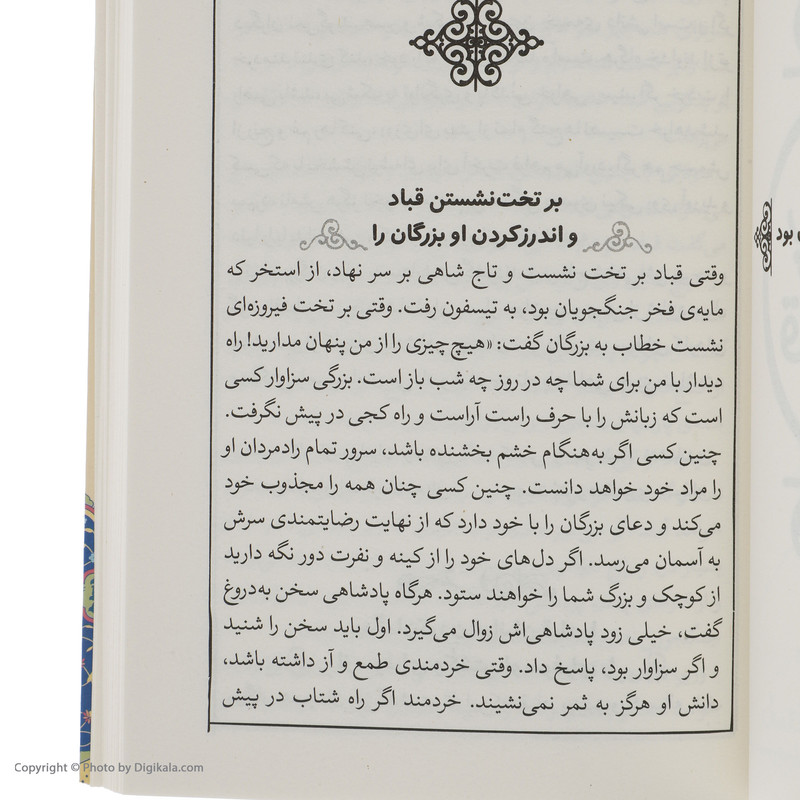 بر تخت‌نشستن قباد
و اندرزکردن او بزرگان را
وقتی قباد بر تخت نشست و تاج شاهی بر سر نهاد، از استخر که
مایه‌ی فخر جنگجویان بود، به تیسفون رفت. وقتی بر تخت فیروزه‌ای
نشست خطاب به بزرگان گفت: «هیچ چیزی را از من پنهان مدارید! راه
دیدار با من برای شما چه در روز چه شب باز است. بزرگی سزاوار کسی
است که زبانش را با حرف راست آراست و راه کجی در پیش نگرفت.
چنین کسی اگر به‌هنگام خشم بخشنده باشد، سرور تمام رادمردان او
را مراد خود خواهد دانست. چنین کسی چنان همه را مجذوب خود
می‌کند و دعای بزرگان را با خود دارد که از نهایت رضایتمندی سرش
به آسمان می‌رسد. اگر دل‌های خود را از کینه و نفرت دور نگه دارید
از کوچک و بزرگ شما را خواهند ستود. هرگاه پادشاهی سخن به‌دروغ
گفت، خیلی زود پادشاهی‌اش زوال می‌گیرد. اول باید سخن را شنید
و اگر سزاوار بود، پاسخ داد. وقتی خردمندی طمع و آز داشته باشد،
دانش او هرگز به ثمر نمی‌نشیند. خردمند اگر راه شتاب در پیش
بود
Copyright © Photo by Digikala.com